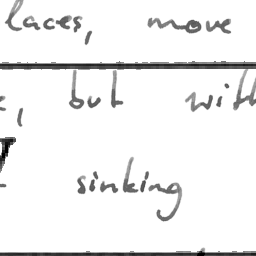 laces, move
, but with
sinking